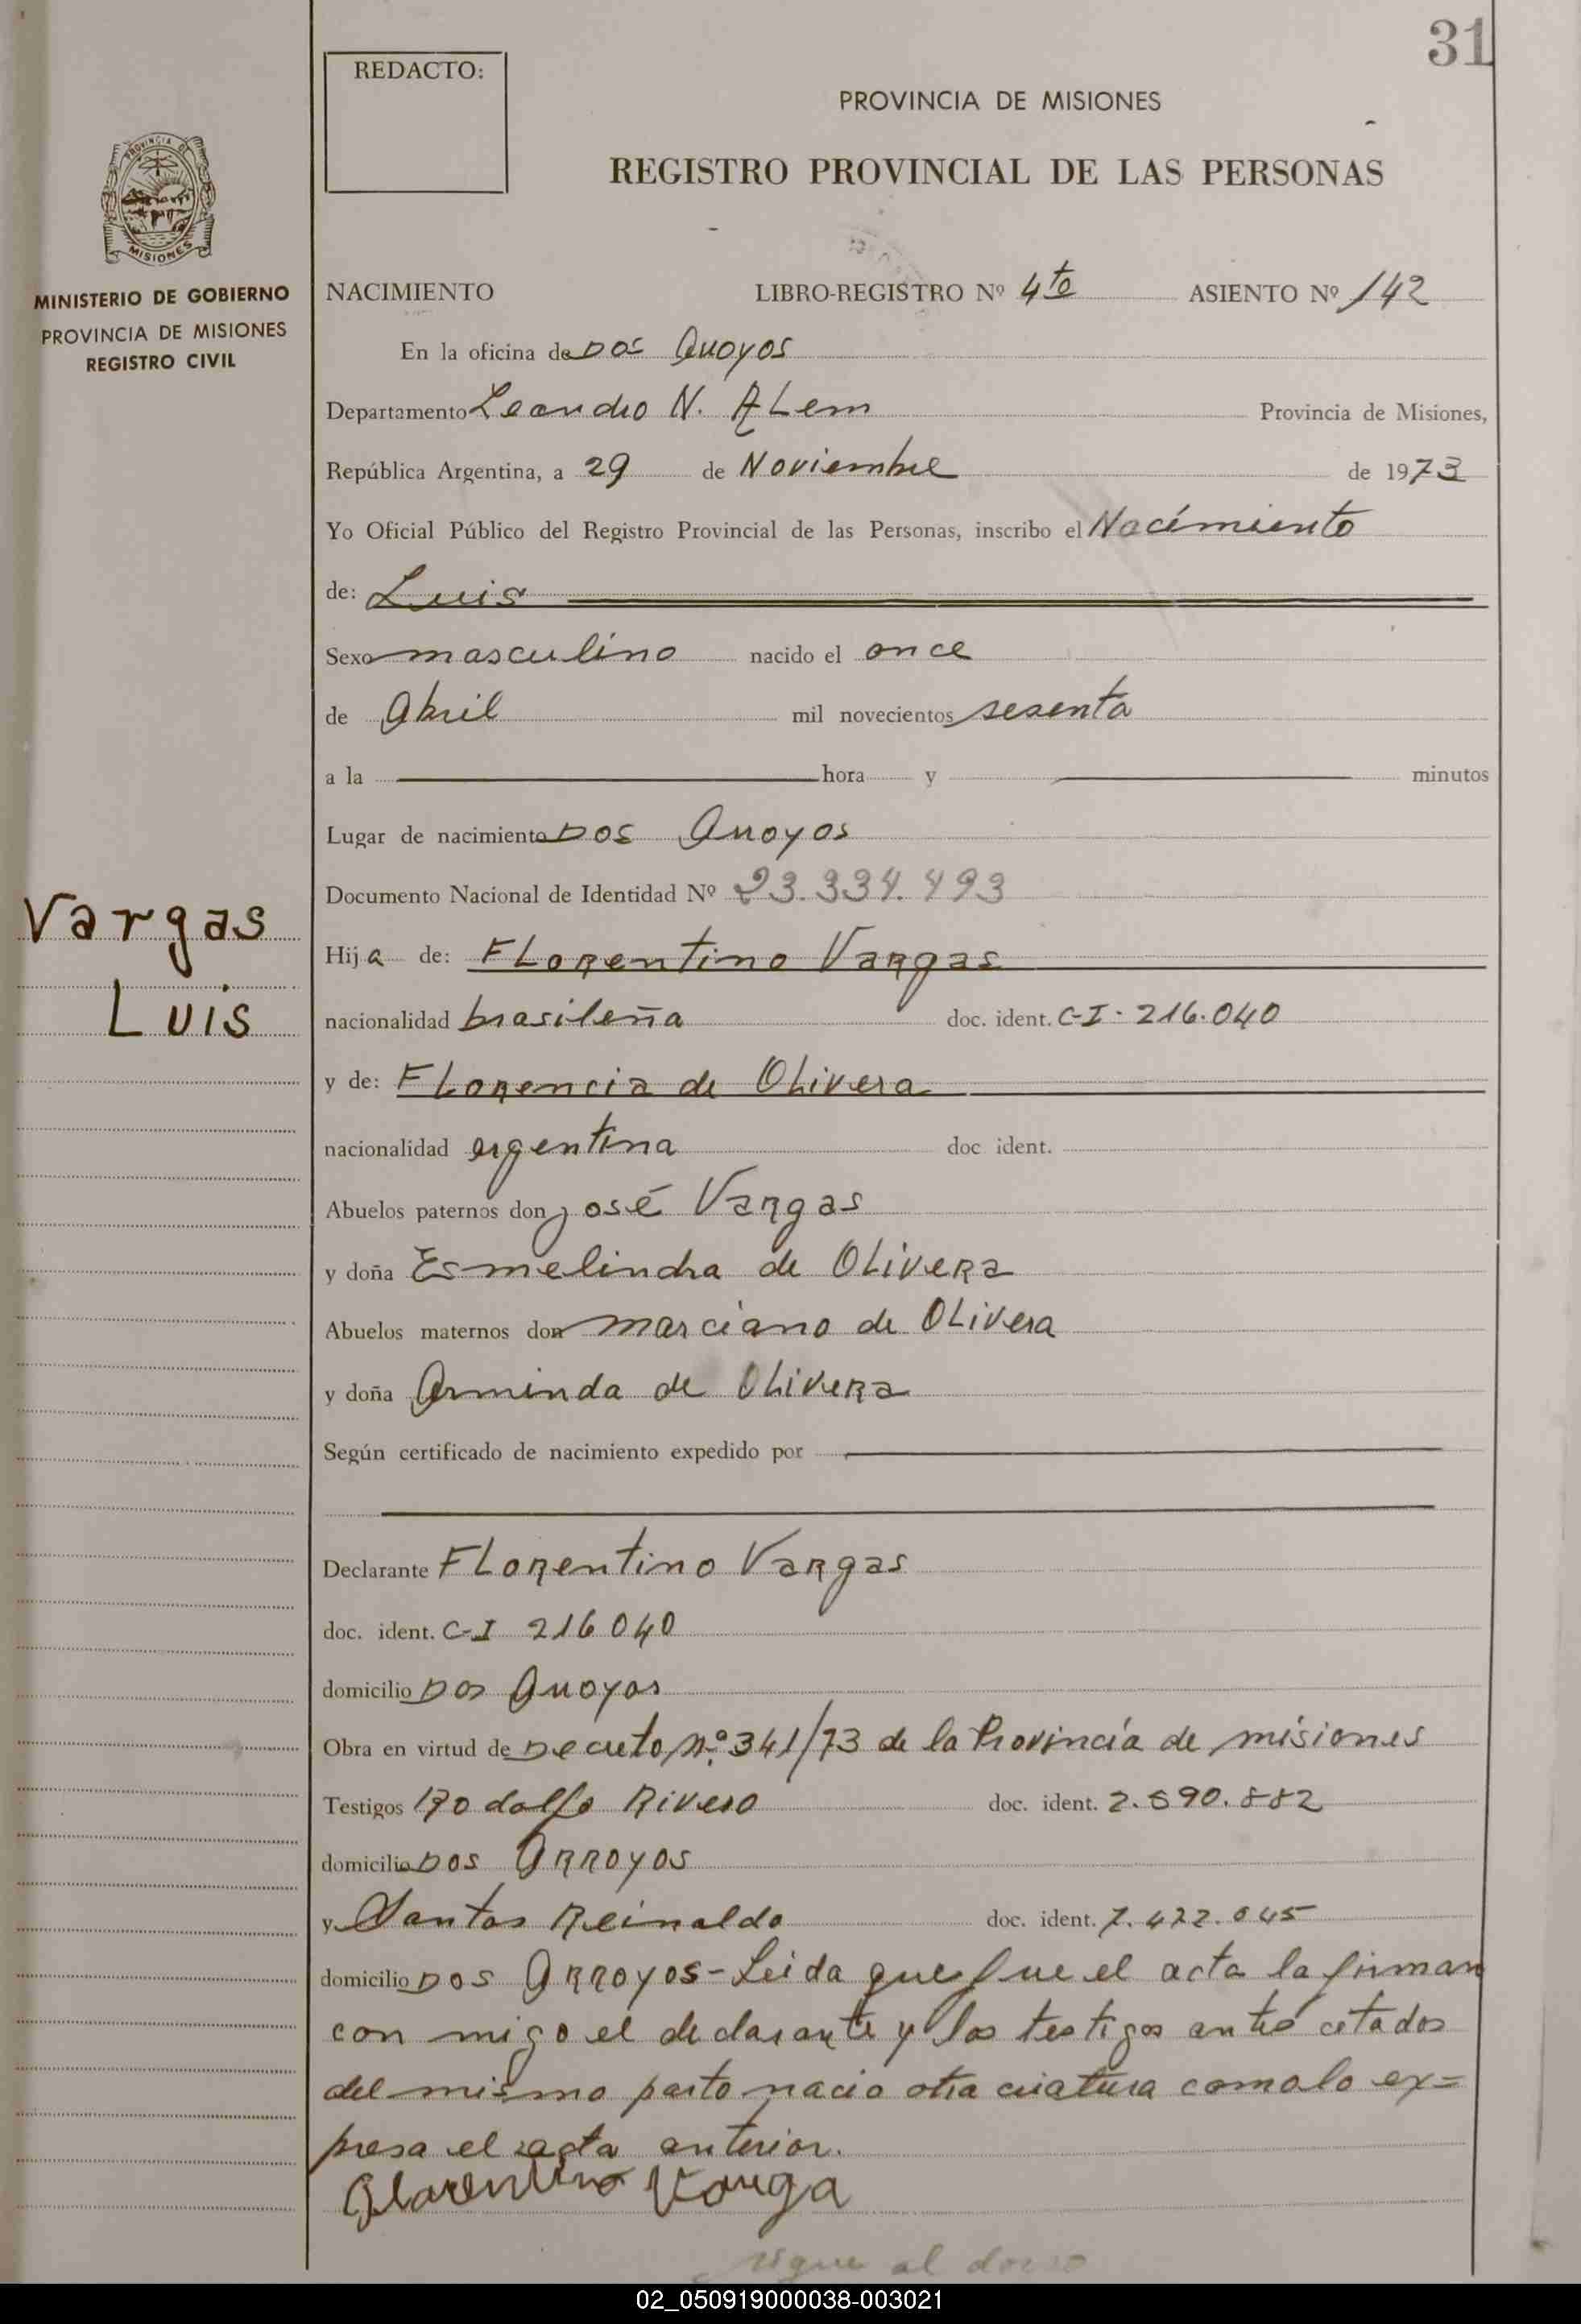 31
REDACTO:
PROVINCIA DE MISIONES
REGISTRO PROVINCIAL DE LAS PERSONAS
PROVINCIA DE
MISIONES
MINISTERIO DE GOBIERNO
PROVINCIA DE MISIONES
REGISTRO CIVIL
NACIMIENTO LIBRO-REGISTRO Nº 4to ASIENTO Nº 142
En la oficina de Dos Arroyos
Departamento Leandro N. ALem Provincia de Misiones,
República Argentina, a 29 de Noviembre de 1973
Yo Oficial Público del Registro Provincial de las Personas, inscribo el Nacimiento
de: Luis
Sexo masculino nacido el once
de Abril mil novecientos sesenta
a la hora y minutos
Lugar de nacimiento Dos Arroyos
Documento Nacional de Identidad Nº 23.334.493
Vargas
Luis
Hij a de: FLorentino Vargas
nacionalidad brasileña doc. ident. C-I-216.040
y de: FLorencia de OLivera
nacionalidad argentina doc ident.
Abuelos paternos don José Vargas
y doña Esmelindra de OLivera
Abuelos maternos don marciano de OLivera
y doña Arminda de OLivera
Según certificado de nacimiento expedido por
Declarante FLorentino Vargas
doc. ident. C-I 216 040
domicilio Dos Arroyos
Obra en virtud de Decreto n.º 341/73 de la Provincia de misiones
Testigos Rodolfo Rivero doc. ident. 2.590.882
domicilio Dos Arroyos
y Santos Reinaldo doc. ident. 7.422.045
domicilio Dos Arroyos-Leida que fue el acta la firman
con migo el declarante y los testigos citados
del mismo parto nacio otra criatura como lo ex=
presa el acta anterior.
Florentino Varga
sigue al dorso
02_050919000038-003021